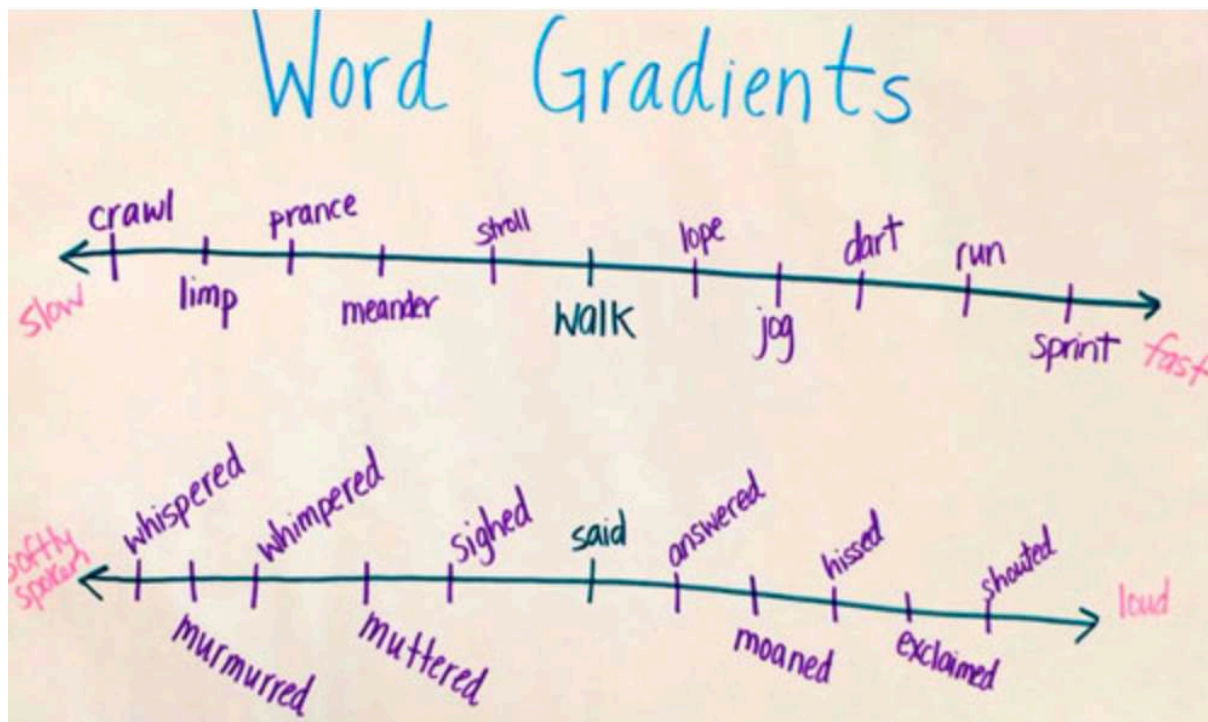 Word Gradients
crawl limp prance meander stroll walk lope jog dart run sprint
slow fast
whispered murmurred whimpered muttered sighed said answered moaned hissed exclaimed shouted
softly
spoken
loud